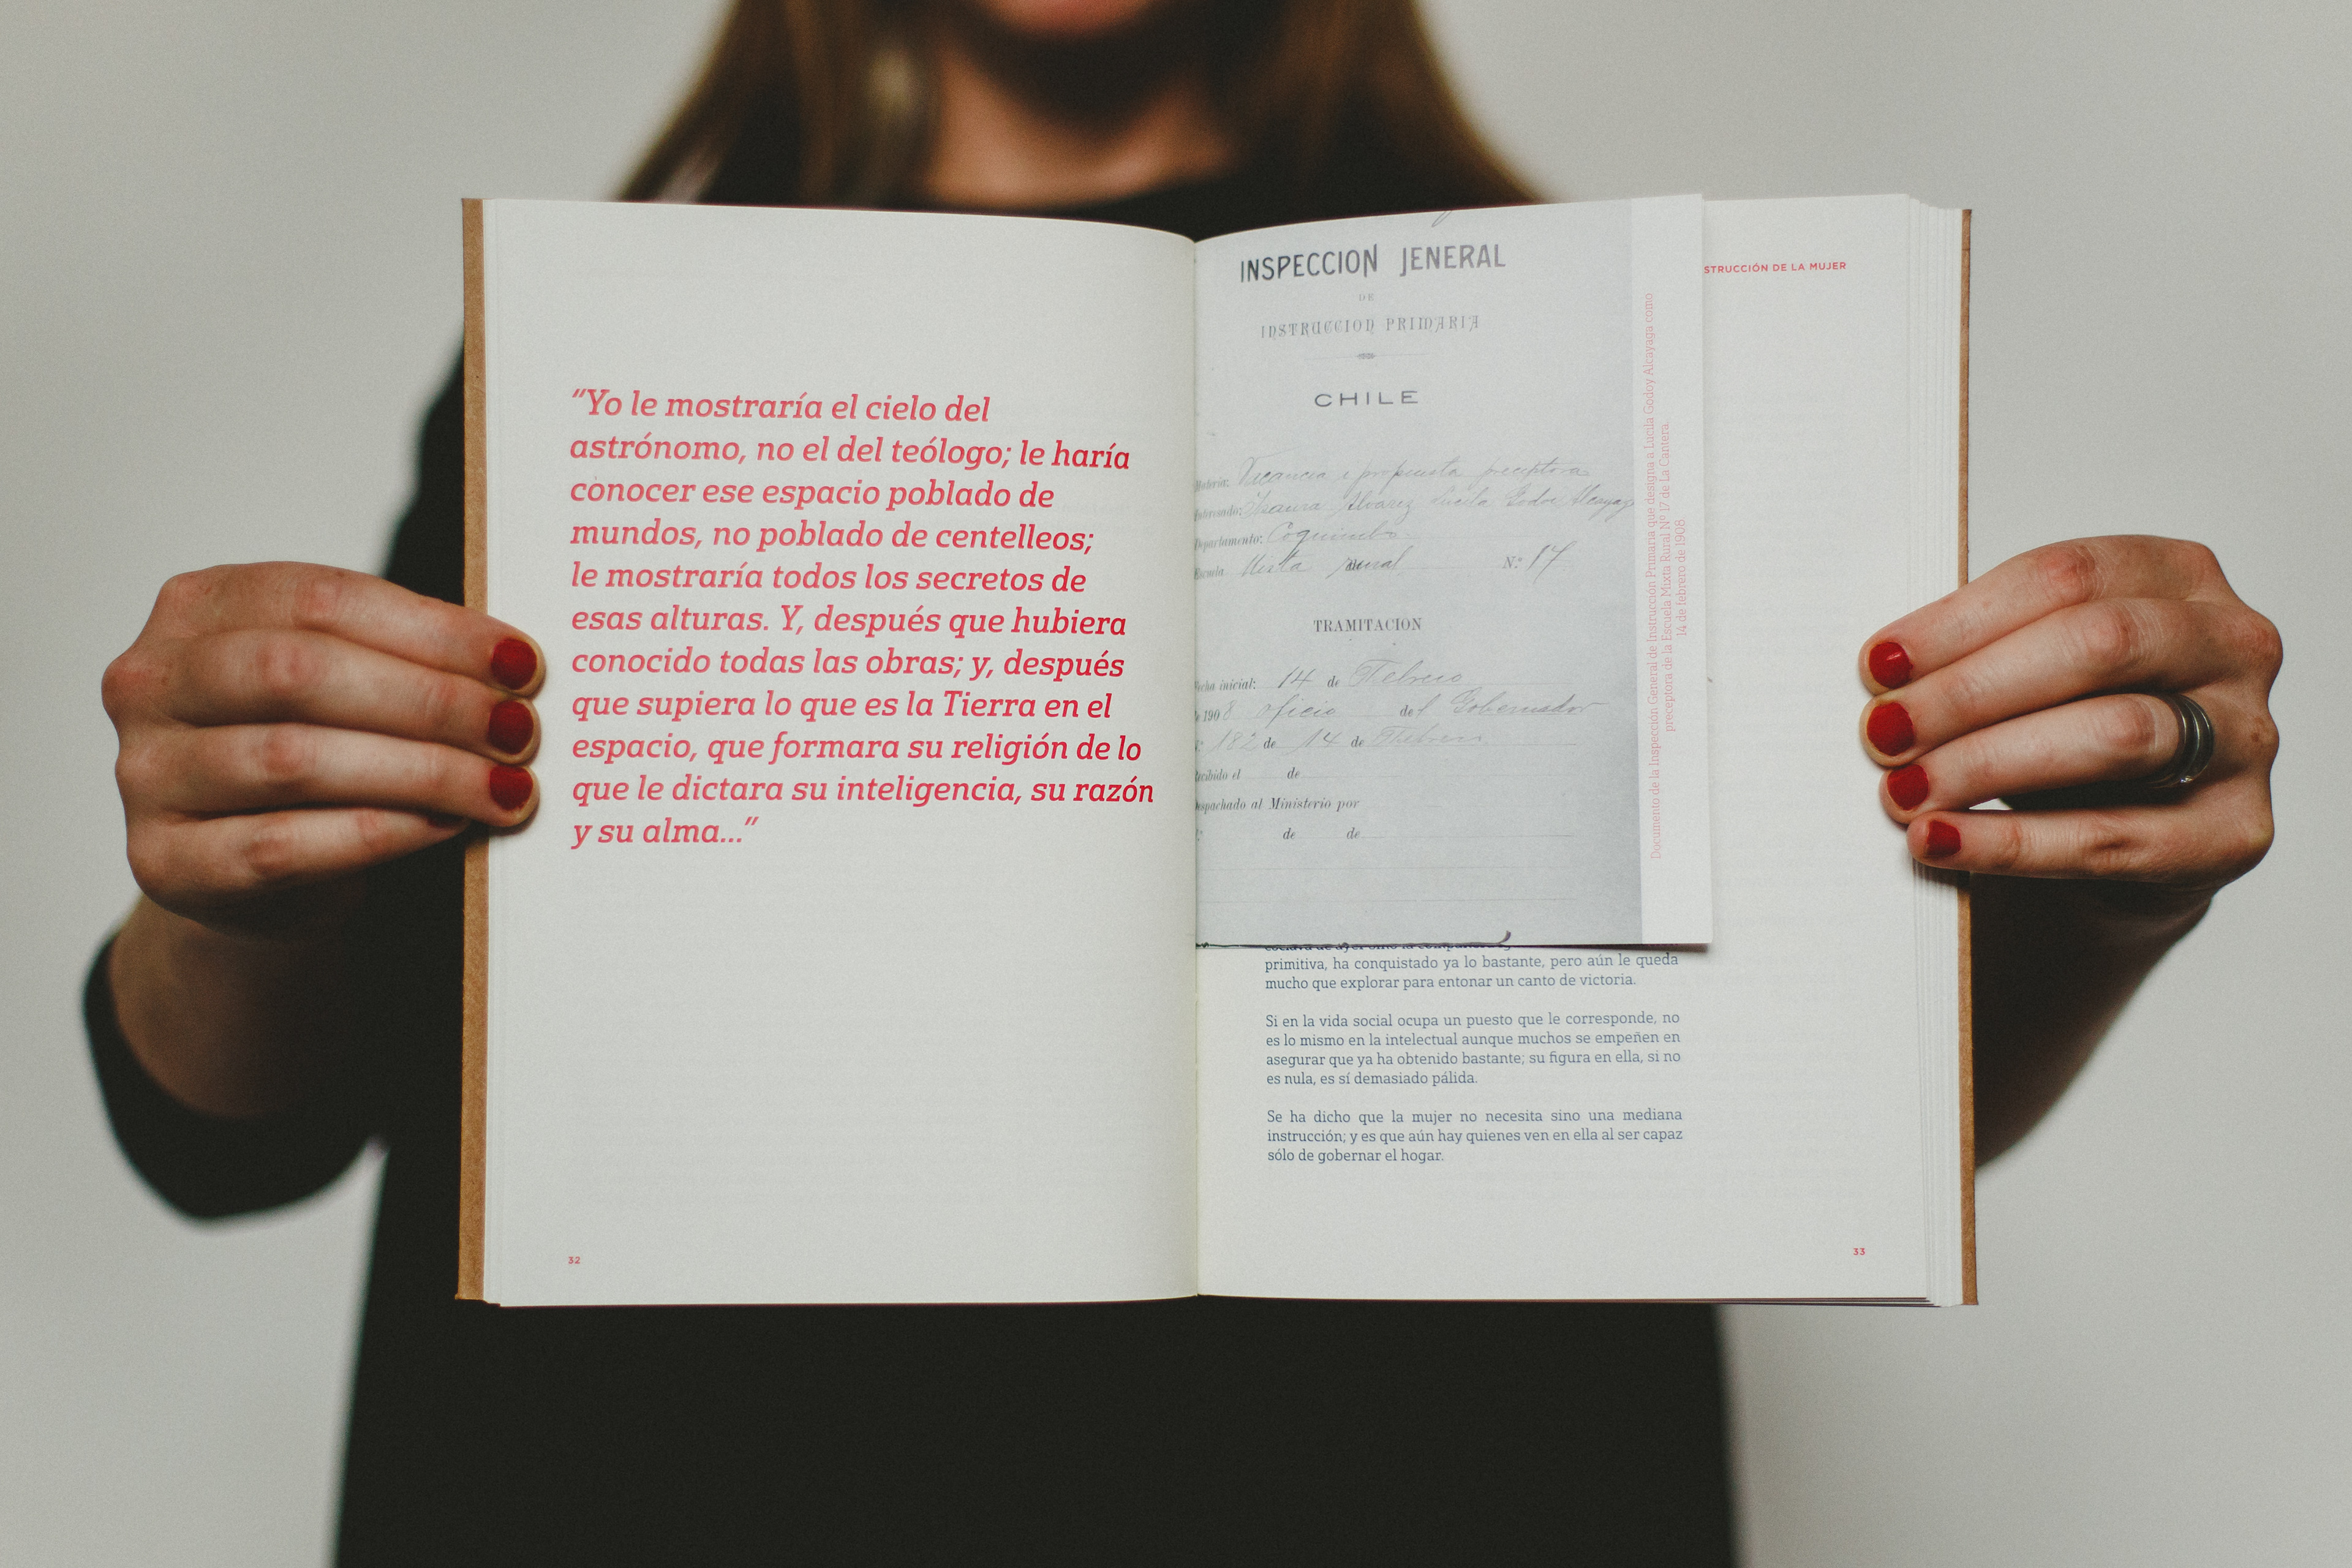 “Yo le mostraría el cielo del
astrónomo, no el del teólogo; le haría
conocer ese espacio poblado de
mundos, no poblado de centelleos;
le mostraría todos los secretos de
esas alturas. Y, después que hubiera
conocido todas las obras; y, después
que supiera lo que es la Tierra en el
espacio, que formara su religión de lo
que le dictara su inteligencia, su razón
y su alma...”
32
STRUCCIÓN DE LA MUJER
INSPECCION JENERAL
DE
INSTRUCCION PRIMARIA
CHILE
Vacancia i propuesta preceptora
Isaura Alvarez Lucila Godoi Alcayaga
Coquimbo
Mista Rural N.º 17
TRAMITACION
inicial: 14 de Febrero
1908 oficio del Gobernador
182 de 14 de Febrero
el de
al Ministerio por
de de
Documento de la Inspección General de Instrucción Primaria que designa a Lucila Godoy Alcayaga como
preceptora de la Escuela Mixta Rural Nº 17 de La Cantera.
14 de febrero de 1908
primitiva, ha conquistado ya lo bastante, pero aún le queda
mucho que explorar para entonar un canto de victoria.
Si en la vida social ocupa un puesto que le corresponde, no
es lo mismo en la intelectual aunque muchos se empeñen en
asegurar que ya ha obtenido bastante; su figura en ella, si no
es nula, es sí demasiado pálida.
Se ha dicho que la mujer no necesita sino una mediana
instrucción; y es que aún hay quienes ven en ella al ser capaz
sólo de gobernar el hogar.
33